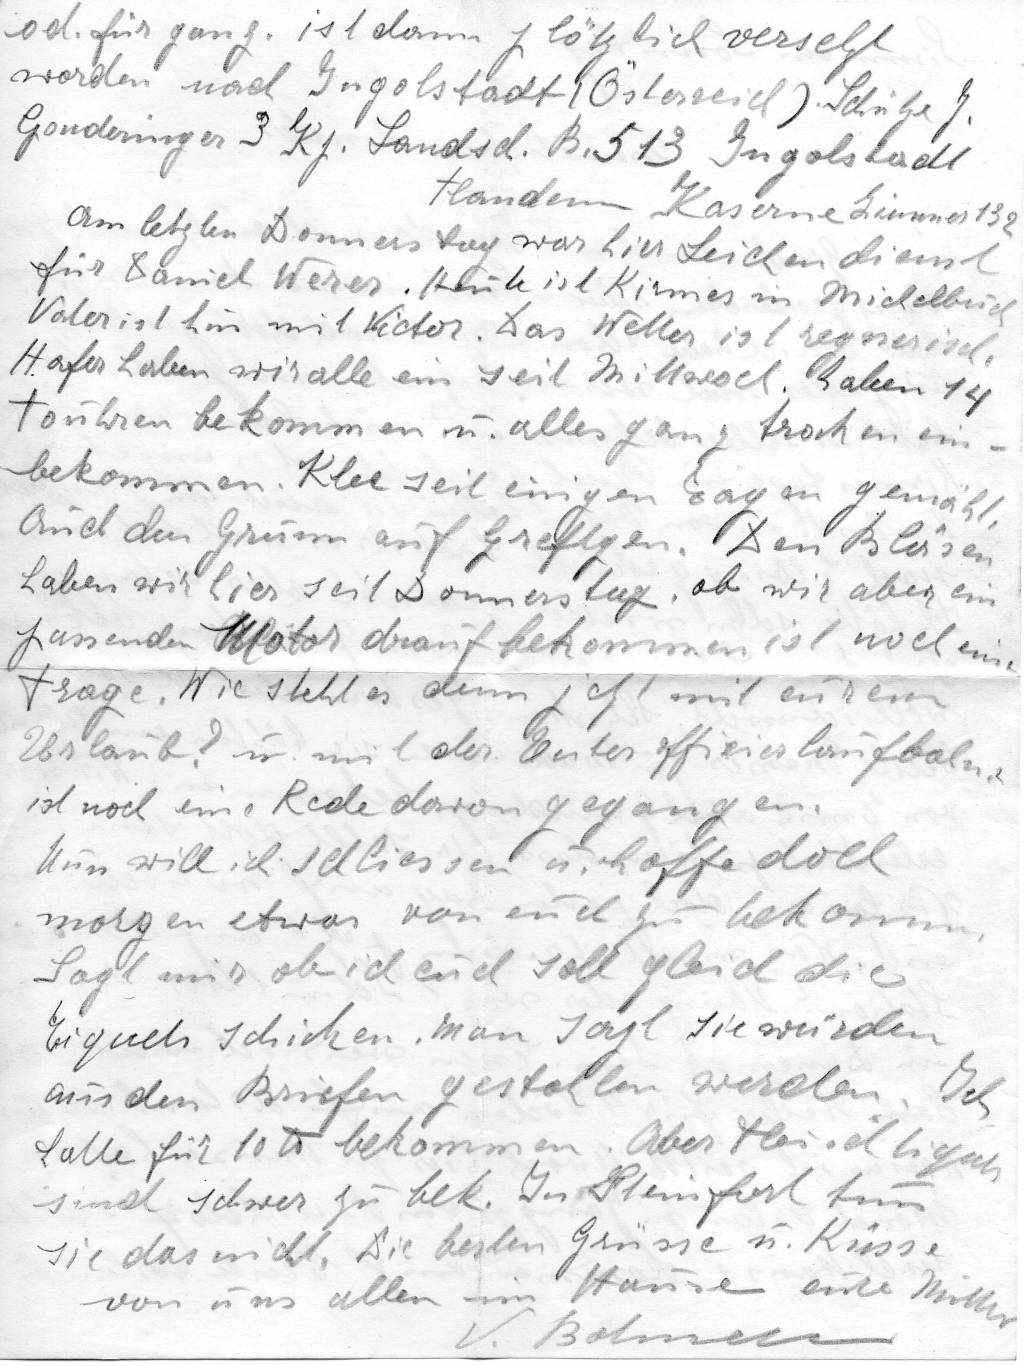 od. für ganz. ist dann plötzlich versetzt
worden nach Ingolstadt (Österreich). Schütze J.
Gonderinger 3 Kp. Landsch. B. 513 Ingolstadt
Flandern Kaserne Zimmer 132
Am letzten Donnerstag war hier Leichendienst
für Daniel Werer. Heute ist Kirmes in Michelbuch
Vater ist hin mit Victor. Das Wetter ist regnerisch.
Hafer haben wir alle ein seit Mittwoch. haben 14
Touhren bekommen u. alles ganz trocken ein-
bekommen. Klee seit einigen Tagen gemäht,
Auch den Grumm auf Greftgen. Den Bläsen
haben wir hier seit Donnerstag, ob wir aber ein
passenden Motor drauf bekommen ist noch eine
Frage. Wie steht es denn jetzt mit eurem
Urlaub? u. mit der Unterofficierlaufbahn,
ist noch eine Rede davon gegangen.
Nun will ich schliessen u. hoffe doch
morgen etwas von euch zu bekomm.
Sagt mir ob ich euch soll gleich die
Tiquets schicken. Man sagt sie würden
aus den Briefen gestohlen werden. Ich
hatte für 10 ℔ bekommen. Aber Fleischtiquets
sind schwer zu bek. In Steinfort tun
sie das nicht. Die besten Grüsse u. Küsse
von uns allen im Hause eure Mutter
V.